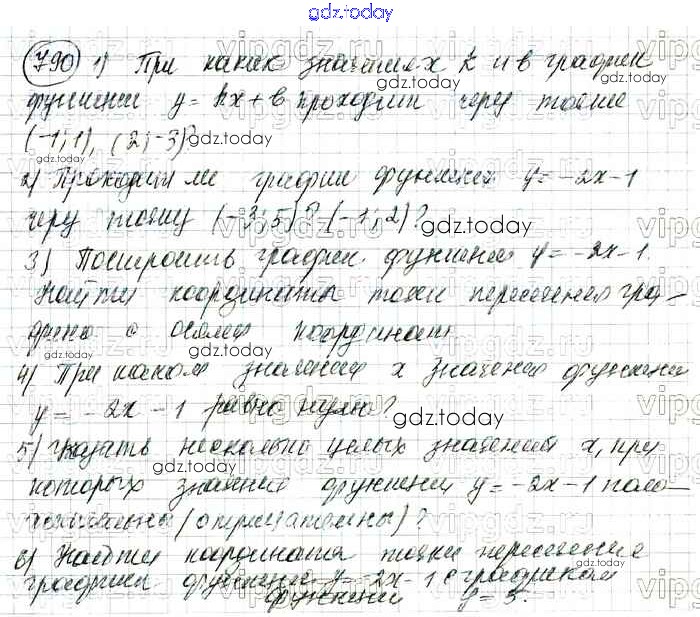 gdz.today
790 1) При каких значениях k и в график
функции y = kx + в проходит через точки
(-1; 1), (2; -3)?
2) Проходит ли график функции y = -2x - 1
через точку (-3; 5)? (-1; 2)?
3) Построить график функции y = -2x - 1.
Найти координаты точки пересечения гра-
фика с осями координат
4) При каком значении x значение функции
y = -2x - 1 равно нулю?
5) Указать несколько целых значений x, при
которых значение функции y = -2x - 1 поло-
жительны (отрицательны)?
6) Найти координаты точки пересечения
графика функции y = -2x - 1 с графиком
функции y = 5.